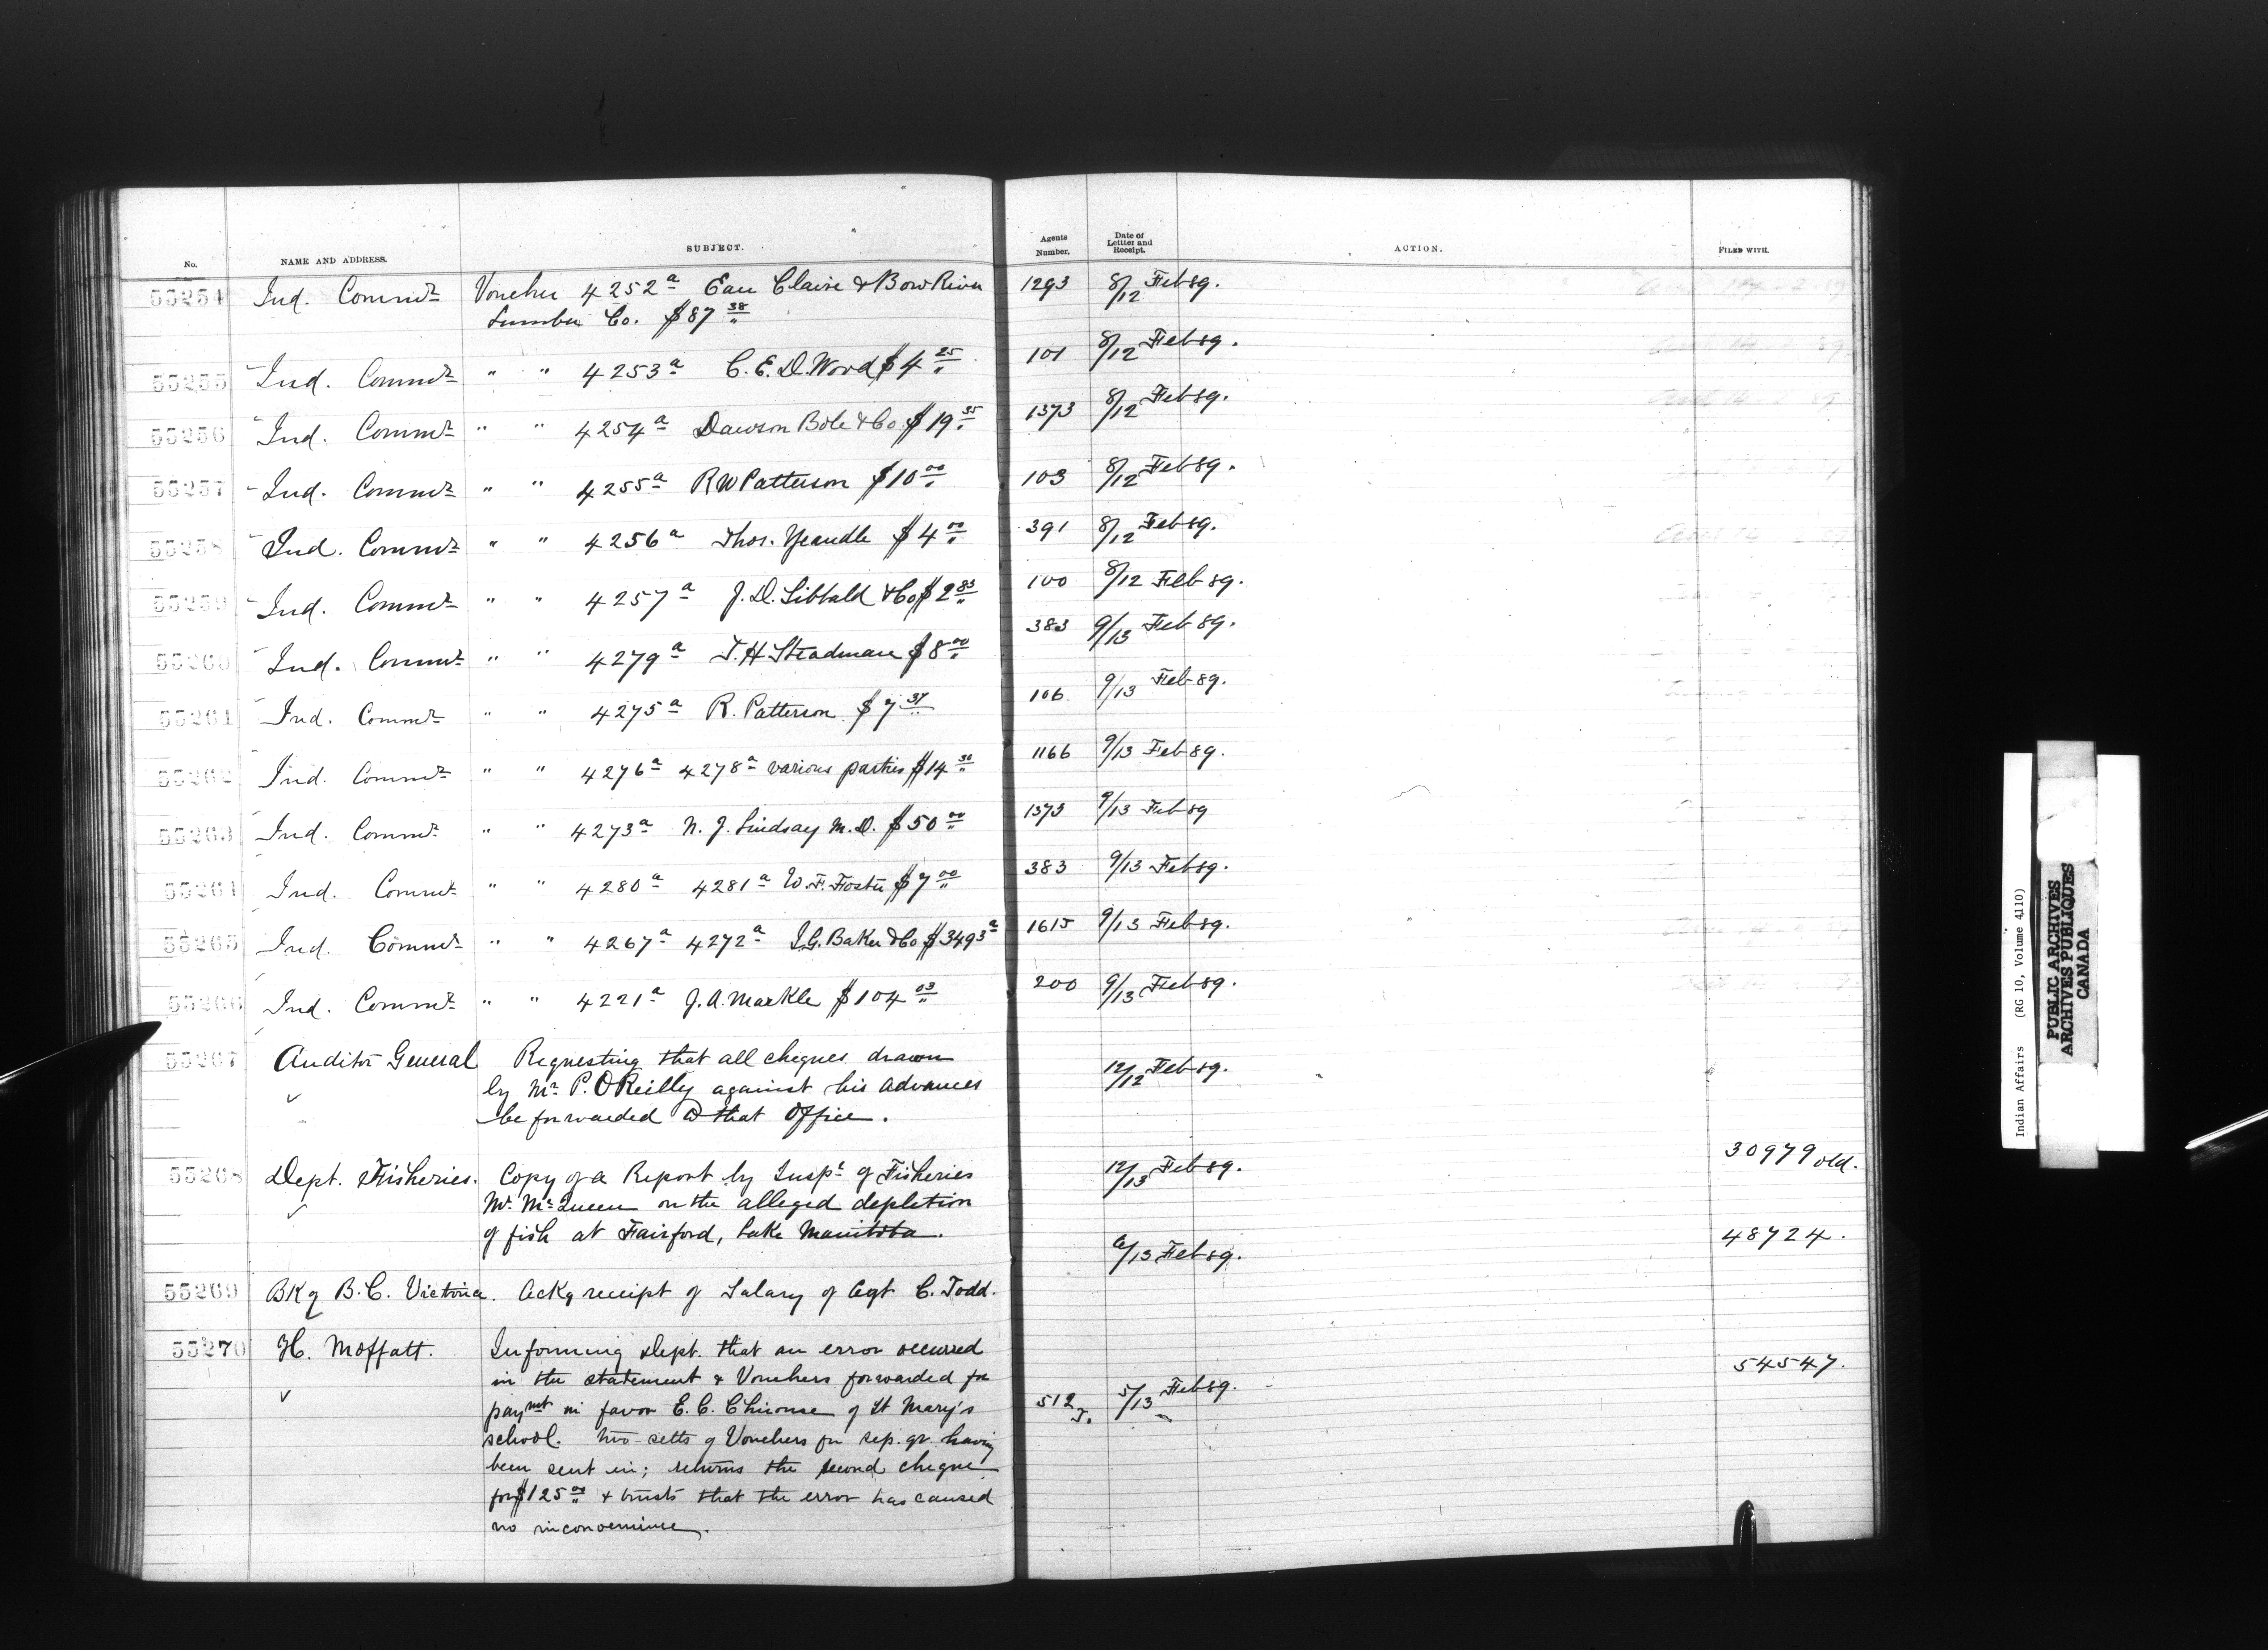 No. NAME AND ADDRESS. SUBJECT. Agents Number. Date of Lettter and Receipt. ACTION. FILED WITH.
55254 Ind. Commr Voucher 4252a Eau Claire & Bow River 1293 8/12 Feb 89.
Lumber Co. $87 38
55255 Ind. Commr " " 4253a C. E. D. Wood $4 25 101 8/12 Feb 89.
55256 Ind. Commr " " 4254a Dawson Bole & Co $19 35 1373 8/12 Feb 89.
55257 Ind. Commr " " 4255a R W Patterson $10 00 103 8/12 Feb 89.
55258 Ind. Commr " " 4256a Thos. Yeandle $4 00 391 8/12 Feb 89.
55259 Ind. Commr " " 4257a J. D. Sibbald & Co $2 83 100 8/12 Feb 89.
55260 Ind. Commr " " 4279a T. H Steadman $8 00 383 9/13 Feb 89.
55261 Ind. Commr " " 4275a R. Patterson $7 37 106 9/13 Feb 89.
55262 Ind. Commr " " 4276a 4278a various parties $14 30 1166 9/13 Feb 89.
55263 Ind. Commr " " 4273a N. J. Lindsay M. D. $50 00 1373 9/13 Feb 89
55264 Ind. Commr " " 4280a 4281a W. F. Foster $7 00 383 9/13 Feb 89.
55265 Ind. Commr " " 4267a 4272a I. G. Baker & Co $3493 1615 9/13 Feb 89.
55266 Ind. Commr " " 4221a J. A. Markle $104 03 200 9/13 Feb 89.
55267 Auditor General Requesting that all cheques drawn 12/12 Feb 89.
by Mr P. O Reilly against his advances
be forwarded to that Office.
55268 Dept. Fisheries. Copy of a Report by Inspr of Fisheries 12/13 Feb 89. 30979 old.
Mr McQueen on the alleged depletion
of fish at Fairford, Lake Manitoba. 48724.
55269 Bk of B. C. Victoria. Ackg receipt of Salary of Agt C. Todd. 6/13 Feb 89.
55270 H. Moffatt. Informing Dept. that an error occurred 54547.
in the statement & Vouchers forwarded for
paymt in favor E. C. Chirouse of St Mary's 512 J. 5/13 Feb 89.
school. two setts of Vouchers for Sep. qr. having
been sent in; returns the second cheque
for $125 00 & trusts that the error has caused
no inconvenience.
Indian Affairs (RG 10, Volume 4110)
PUBLIC ARCHIVES
ARCHIVES PUBLIQUES
CANADA